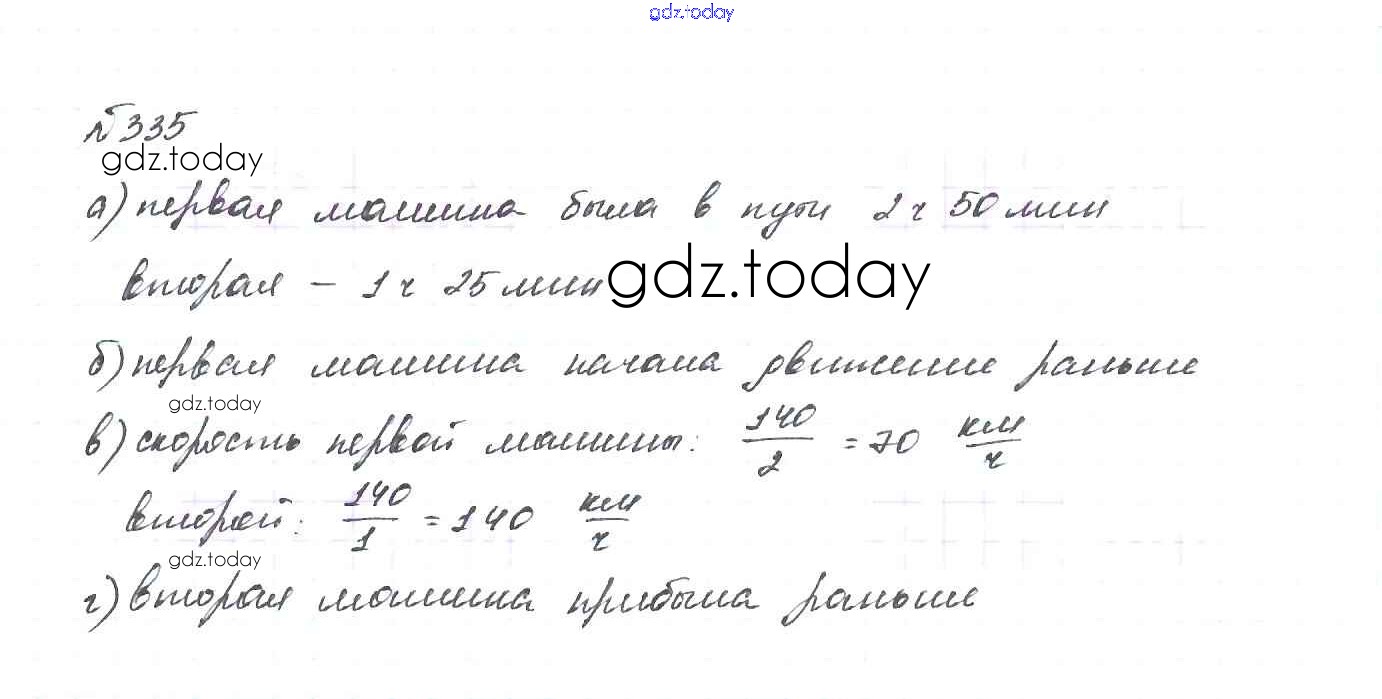 gdz.today
№335
gdz.today
а) первая машина была в пути 2 ч 50 мин
вторая – 1 ч 25 мин gdz.today
б) первая машина начала движение раньше
gdz.today
в) скорость первой машины: 140/2 = 70 км/ч
второй: 140/1 = 140 км/ч
gdz.today
г) вторая машина прибыла раньше